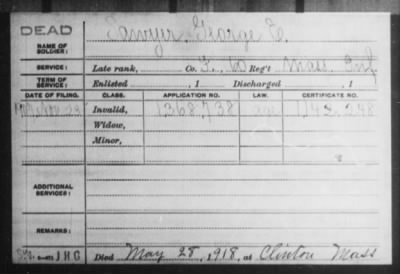 DEAD
NAME OF SOLDIER: Sawyer, George E.
SERVICE: Late rank, Co. F, 60 Reg't Mass Inf
TERM OF SERVICE: Enlisted , 1 Discharged , 1
DATE OF FILING. CLASS. APPLICATION NO. LAW. CERTIFICATE NO.
Invalid, 1368,738
Widow,
Minor,
ADDITIONAL SERVICES:
REMARKS:
JHG Died May 28, 1918, at Clinton Mass